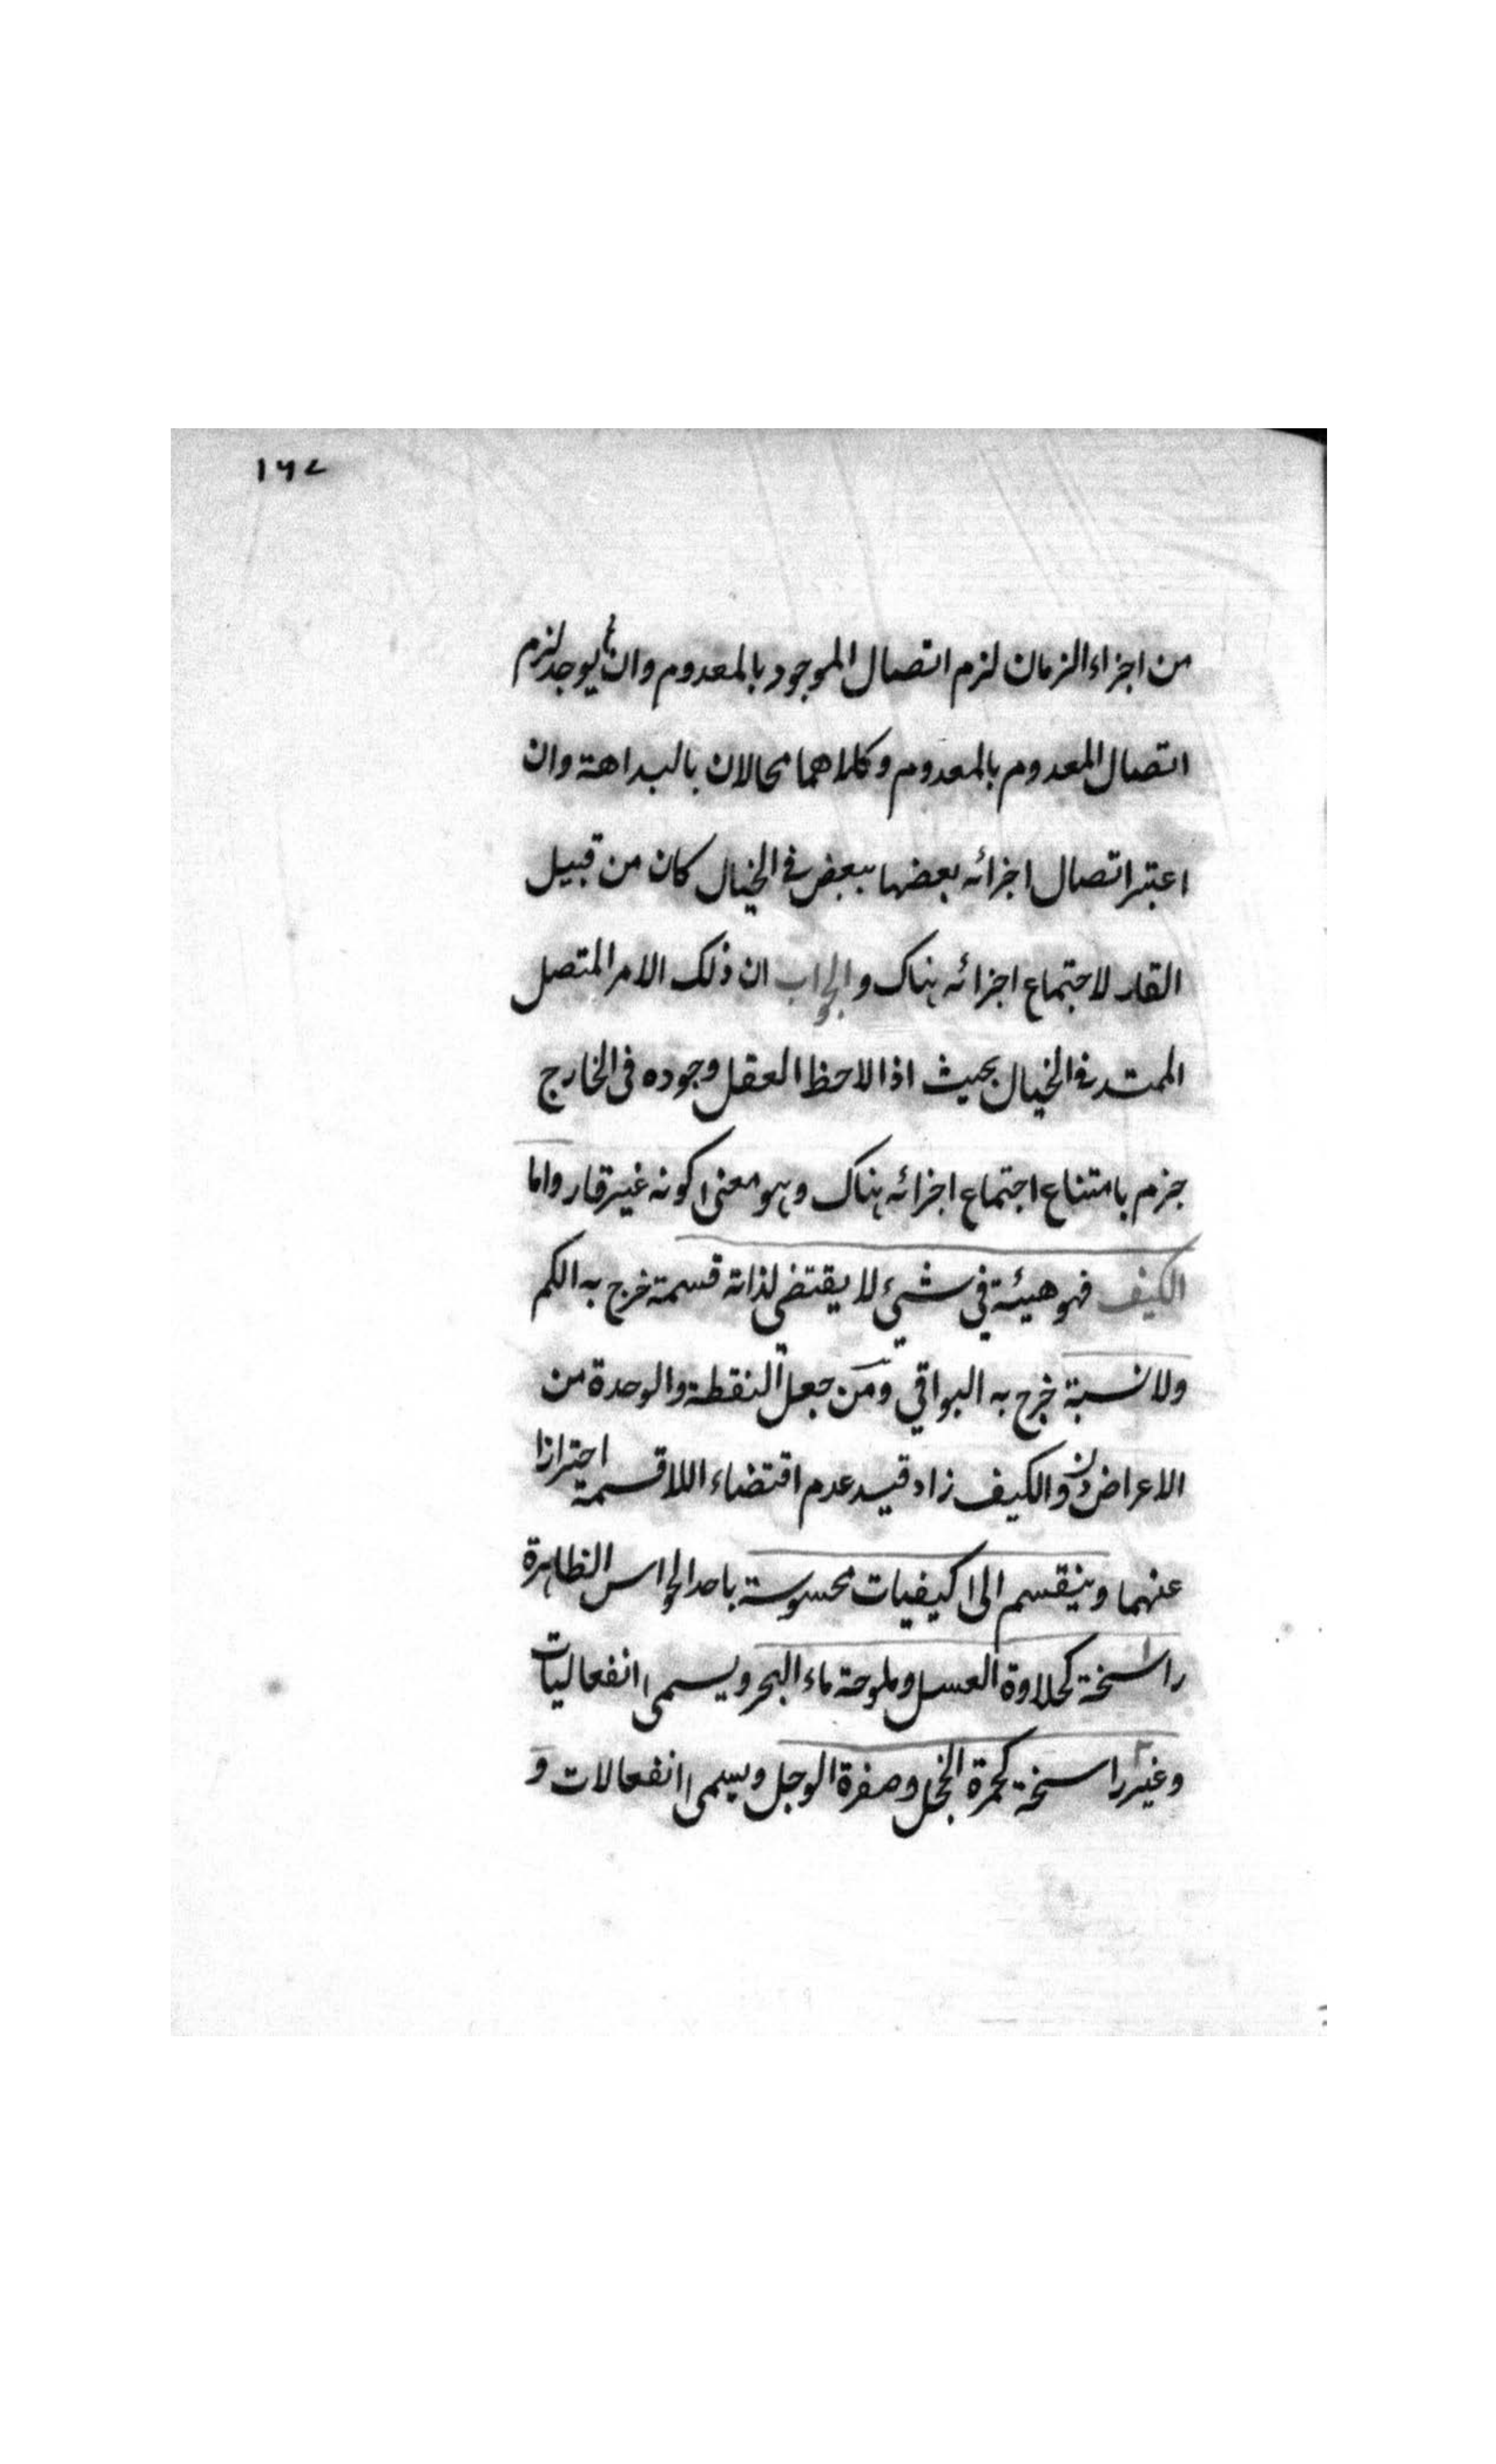 ١٦٧
من اجزاء الزمان لزم اتصال الموجود بالمعدوم وان لم يوجد لزم
اتصال المعدوم بالمعدوم وكلاهما محالان بالبداهة وان
اعتبر اتصال اجزائه بعضها ببعض في الخيال كان من قبيل
القار لاجتماع اجزائه هناك والجواب ان ذلك الامر المتصل
الممتد في الخيال بحيث اذا لاحظ العقل وجوده في الخارج
جزم بامتناع اجتماع اجزائه هناك وهو معنى كونه غير قار واما
الكيف فهو هيئة في شيء لا يقتضى لذاته قسمة خرج به الكم
ولا نسبة خرج به البواقي ومن جعل النقطة والوحدة من
الاعراض دون الكيف زاد قيد عدم اقتضاء اللاقسمة احترازا
عنهما وينقسم الى كيفيات محسوسة باحد الحواس الظاهرة
راسخة كحلاوة العسل وملوحة ماء البحر ويسمى انفعاليات
وغير راسخة كحمرة الخجل وصفرة الوجل ويسمى انفعالات و